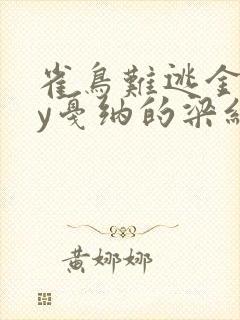 雀鳥難逃金
y戛纳的梁紅
黄娜娜